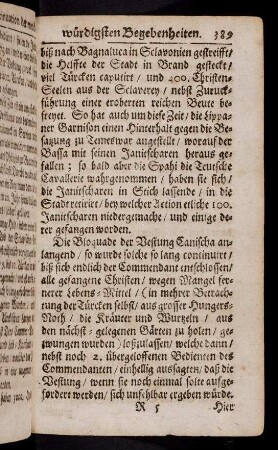 würdigsten Begebenheiten. 389
biß nach Bagnaluca in Sclavonien gestreifft/
die Helffte der Stadt in Brand gesteckt/
viel Türcken caputirt / und 400. Christen-
Seelen aus der Sclaverey / nebst Zuruck-
führung einer eroberten reichen Beute be-
freyet. So hat auch um diese Zeit / die Lippa-
ner Garnison einen Hinterhalt gegen die Be-
satzung zu Temeswar angestellt / worauf der
Bassa mit seinen Janitscharen heraus ge-
fallen ; so bald aber die Spahi die Teutsche
Cavallerie wahrgenommen / haben sie sich /
die Janitscharen in Stich lassende / in die
Stadt retirirt / bey welcher Action etliche 100.
Janitscharen niedergemacht / und einige de-
rer gefangen worden.
Die Bloquade der Vestung Canischa an-
langend / so wurde solche so lang continuirt /
biß sich endlich der Commendant entschlossen /
alle gefangene Christen / wegen Mangel fer-
nerer Lebens-Mittel / (in mehrer Betrach-
tung der Türcken selbst / aus grosser Hungers-
Noth / die Kräuter und Wurzeln / aus
den nächst-gelegenen Gärten zu holen / ge-
zwungen wurden) loßzulassen / welche dann /
nebst noch 2. übergeloffenen Bedienten des
Commendanten / einhellig aussagten / daß die
Vestung / wenn sie noch einmal solte aufge-
fordert werden / sich unfehlbar ergeben würde.
R 5 Hier